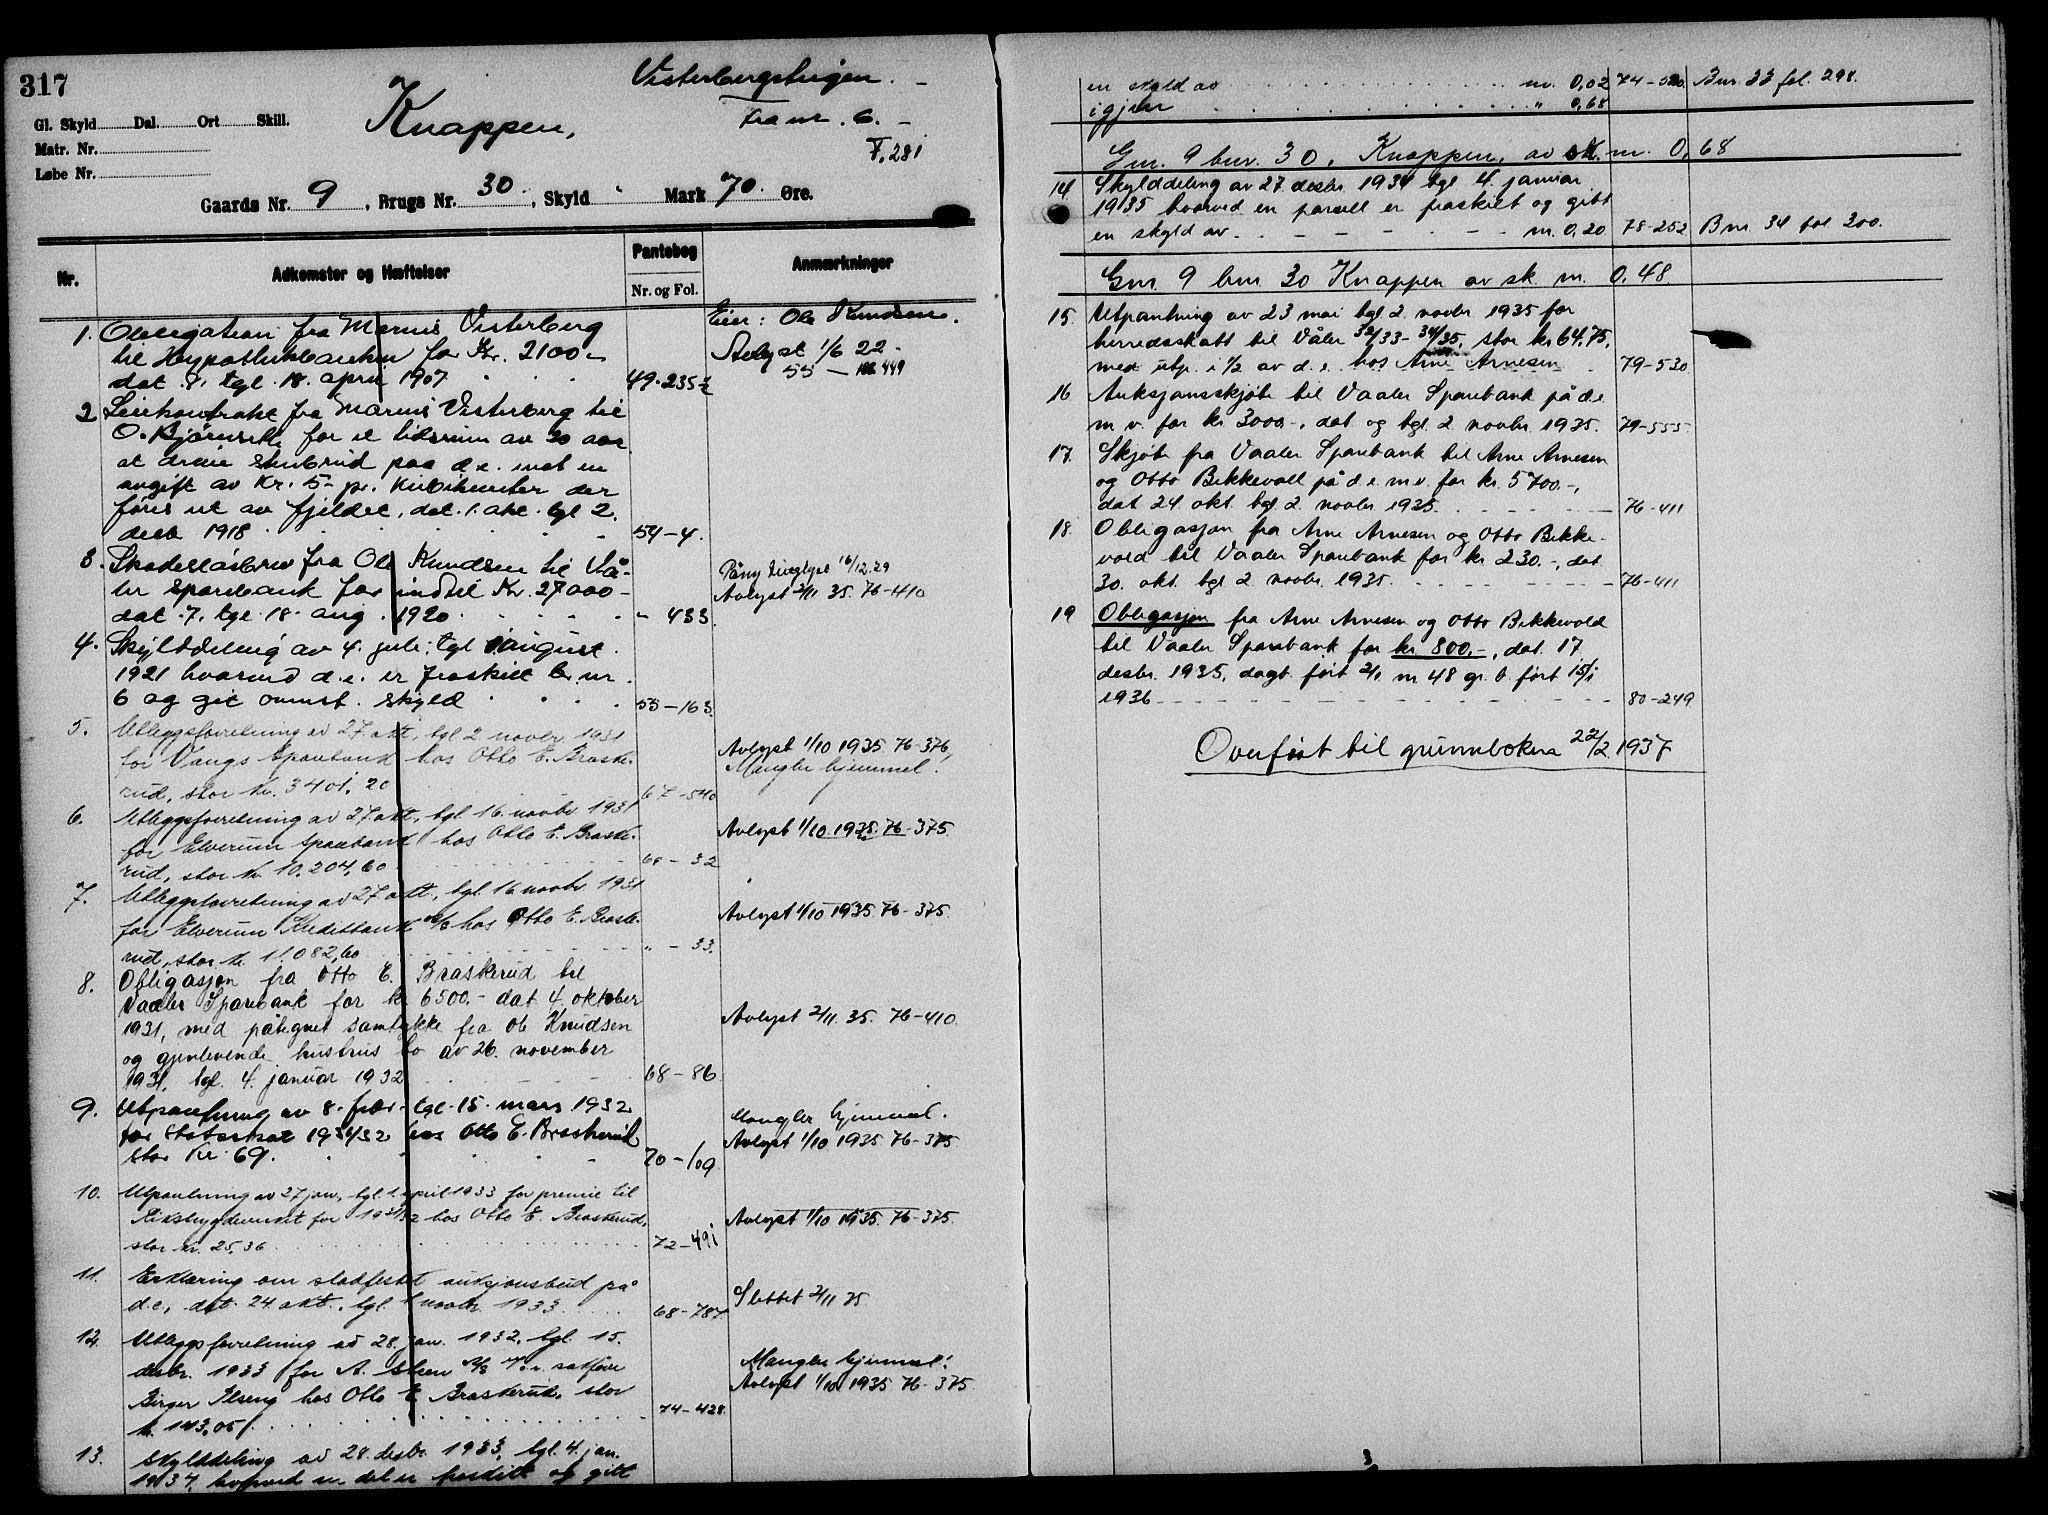 317
Visterbergsteigen.
Gl. Skyld Dal. Ort Skill.
Knappen,
Fra nr. 6.
Matr. Nr.
V, 281
Løbe Nr.
Gaards Nr. 9, Brugs Nr. 30, Skyld " Mark 70 Øre.
Nr. Adkomster og Hæftelser Pantebog Nr. og Fol. Anmærkninger
Eier: Ole Knudsen.
1. Obligation fra Marius Visterberg
til Hypothekbanken for Kr. 2100-
dat. 8. tgl. 18. april 1907. 49-235
Avlyst 1/6 22 -
55 - 449
2 Leiekontrakt fra Marius Visterberg til
O. Bjørnseth for et tidsrum av 20 aar
at drive stenbrud paa d.e. mot en
avgift av Kr. 5- pr. kubikmeter der
føres ut av fjeldet, dat. 1. okt. tgl 2.
desb. 1918 54-4.
3. Skadesløsbrev fra Ole Knudsen til Vå-
ler sparebank for indtil Kr. 27000-
dat. 7. tgl. 18. aug. 1920. " 433
Påny tinglyst 16/12.29
Avlyst 2/11 35. 76-410
4. Skylddeling av 4. juli, tgl. august
1921 hvorved d.e. er fraskilt b.nr.
6 og git ovenst. skyld 55-163.
5. Utleggsforretning av 27. okt, tgl. 2 novbr. 1931
for Vangs Sparebank hos Otto E. Braske-
rud, stor kr. 3401,20 67-540
Avlyst 1/10 1935. 76-376,
Mangler hjemmel.
6. Utleggsforretning av 27. okt, tgl. 16. novbr 1931
for Elverum Sparebank hos Otto E. Braske-
rud, stor kr. 10.204,60 68-32
Avlyst 1/10 1935. 76-375.
7. Utleggsforretning av 27 okt, tgl. 16 novbr. 1931
for Elverum Kreditbank A/S hos Otto E. Braske-
rud, stor kr. 11.082,60 " - 33.
Avlyst 1/10 1935. 76-375.
8. Obligasjon fra Otto E. Braskerud til
Vaaler Sparebank for kr 6500.- dat. 4. oktober
1931, med påtegnet samtykke fra Ole Knudsen
og gjenlevende hustrus bo av 26. november
1931, tgl. 4. januar 1932 68-86
Avlyst 2/11. 35. 76-410.
9. Utpantning av 8. febr. tgl. 15. mars 1932
for Statsskat 1931/32 hos Otto E. Braskerud
stor Kr 69. 70-109
Mangler hjemmel.
Avlyst 1/10 1935. 76-375
10. Utpantning av 27 jan, tgl. 1. april 1933 for premie til
Riksbygdevesnet for 1931/32 hos Otto E. Braskerud,
stor kr. 25,36 72-491
Avlyst 1/10 1935. 76-375.
11. Erklæring om stadfestet auksjonsbud på
d.e, dat. 24 okt., tgl. 1 novbr 1933 68-787
Slettet 2/11 35
12. Utleggsforretning av 28. jan. 1932, tgl. 15.
desbr. 1933 for A. Steen A/S v. o.r. sakfører
Birger Ilseng hos Otto E. Braskerud, stor
kr. 143,05 74-428.
Mangler hjemmel.
Avlyst 1/10 1935 76-375
13. Skylddeling av 28. desbr. 1933, tgl. 4. jan.
1934, hvorved en del er fraskilt og gitt
en skyld av m. 0,02 74-520 Bnr. 33 fol. 298.
igjen " 0,68
Gnr. 9 bnr. 30, Knappen, av sk. m. 0,68
14 Skylddeling av 27. desbr. 1934 tgl. 4. januar
1935 hvorved en parsell er fraskilt og gitt
en skyld av m. 0,20 78-252 Bnr. 34 fol 300.
Gnr. 9 bnr. 30 Knappen av sk. m. 0,48.
15. Utpantning av 23 mai tgl. 2. novbr 1935 for
herredsskatt til Våler 32/33-34/35, stor kr 64,75,
med utp. i 1/2 av d.e. hos Arne Arnesen 79-530
16 Auksjonsskjøte til Vaaler Sparebank på d.e
m.v. for kr 3000-, dat og tgl. 2. novbr. 1935. 79-555
17. Skjøte fra Vaaler Sparebank til Arne Arnesen
og Otto Bekkevoll på d.e. m.v. for kr. 5700.-,
dat 24. okt. tgl. 2. novbr 1935. 76-411
18. Obligasjon fra Arne Arnesen og Otto Bekke-
vold til Vaaler Sparebank for kr 230.-, dat.
30. okt. tgl. 2. novbr. 1935. 76-411
19 Obligasjon fra Arne Arnesen og Otto Bekkevold
til Vaaler Sparebank for kr 800.-, dat. 17
desbr. 1935, dagb. ført 2/1 nr 48 gr. b. ført 15/1
1936 80-249
Overført til grunnboken 22/2 1937